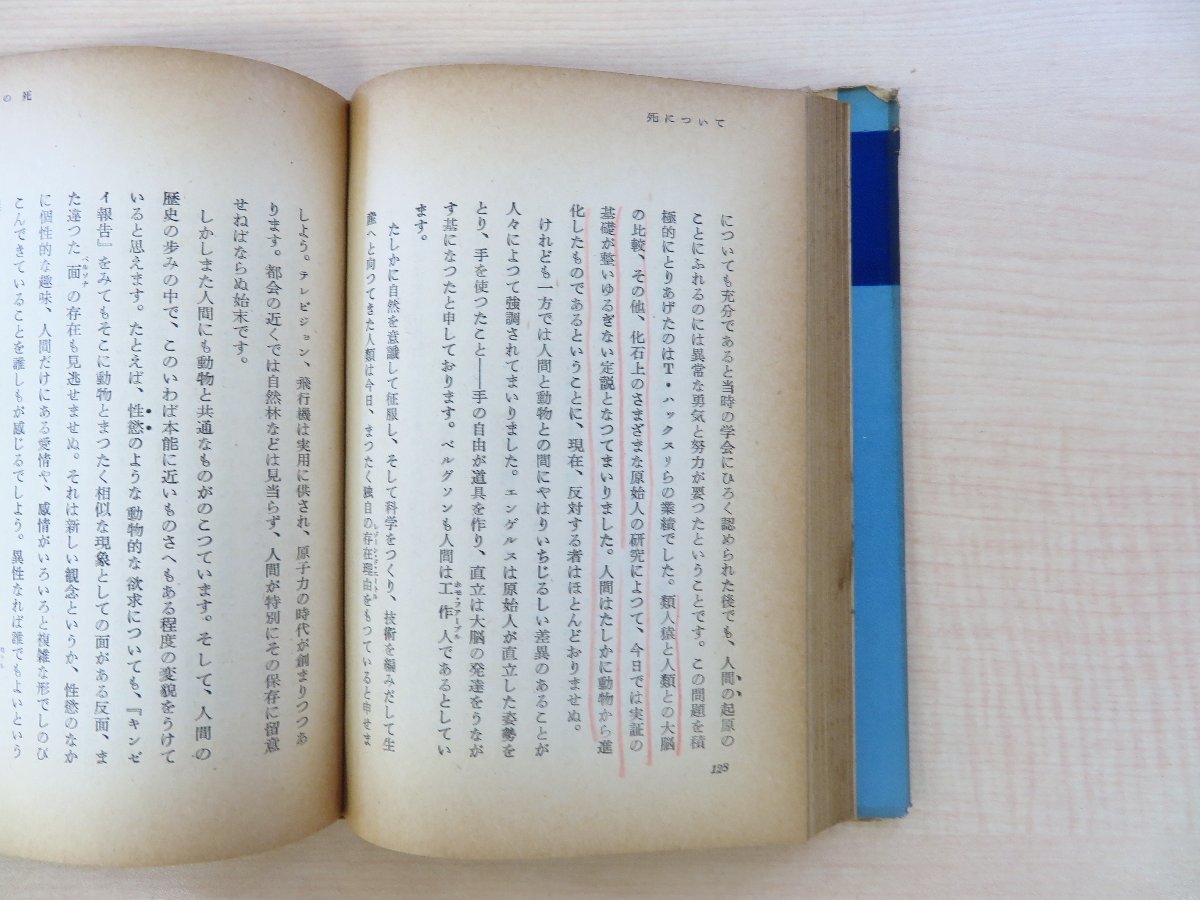 死について
についても充分であると当時の学会にひろく認められた後でも、人間の起原の
ことにふれるのには異常な勇気と努力が要つたということです。この問題を積
極的にとりあげたのはT・ハックスリらの業績でした。類人猿と人類との大脳
の比較、その他、化石上のさまざまな原始人の研究によつて、今日では実証の
基礎が整いゆるぎない定説となつてまいりました。人間はたしかに動物から進
化したものであるということに、現在、反対する者はほとんどおりませぬ。
けれども一方では人間と動物との間にやはりいちじるしい差異のあることが
人々によつて強調されてまいりました。エンゲルスは原始人が直立した姿勢を
とり、手を使つたこと――手の自由が道具を作り、直立は大脳の発達をうなが
す基になつたと申しております。ベルグソンも人間は工作人であるとしてい
ホモ・ファーブル
ます。
たしかに自然を意識して征服し、そして科学をつくり、技術を編みだして生
産へと向つてきた人類は今日、まつたく独自の存在理由をもつていると申せま
128
の死
しよう。テレビジョン、飛行機は実用に供され、原子力の時代が創まりつつあ
ります。都会の近くでは自然林などは見当らず、人間が特別にその保存に留意
せねばならぬ始末です。
しかしまた人間にも動物と共通なものがのこつています。そして、人間の
歴史の歩みの中で、このいわば本能に近いものさへもある程度の変貌をうけて
いると思えます。たとえば、性慾のような動物的な欲求についても、『キンゼ
イ報告』をみてもそこに動物とまつたく相似な現象としての面がある反面、ま
た違つた面の存在も見逃せませぬ。それは新しい観念というか、性慾のなか
ペルソナ
に個性的な趣味、人間だけにある愛情や、感情がいろいろと複雑な形でしのび
こんできていることを誰しもが感じるでしよう。異性なれば誰でもよいという